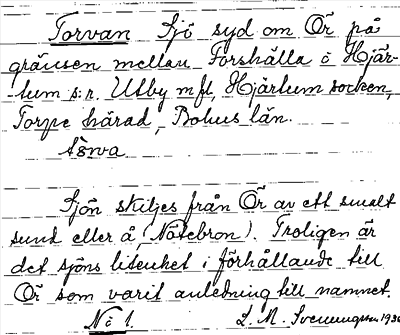 Torvan Sjö syd om Ör på
gränsen mellan Forshälla o Hjär-
tum s:r. Utby mfl, Hjärtum socken,
Torpe härad, Bohus län.
Sjön skiljes från Ör av ett smalt
sund eller å (Nötebron). Troligen är
det sjöns litenhet i förhållande till
Ör som varit anledning till namnet.
No 1. L. M. Svenungsson 1930